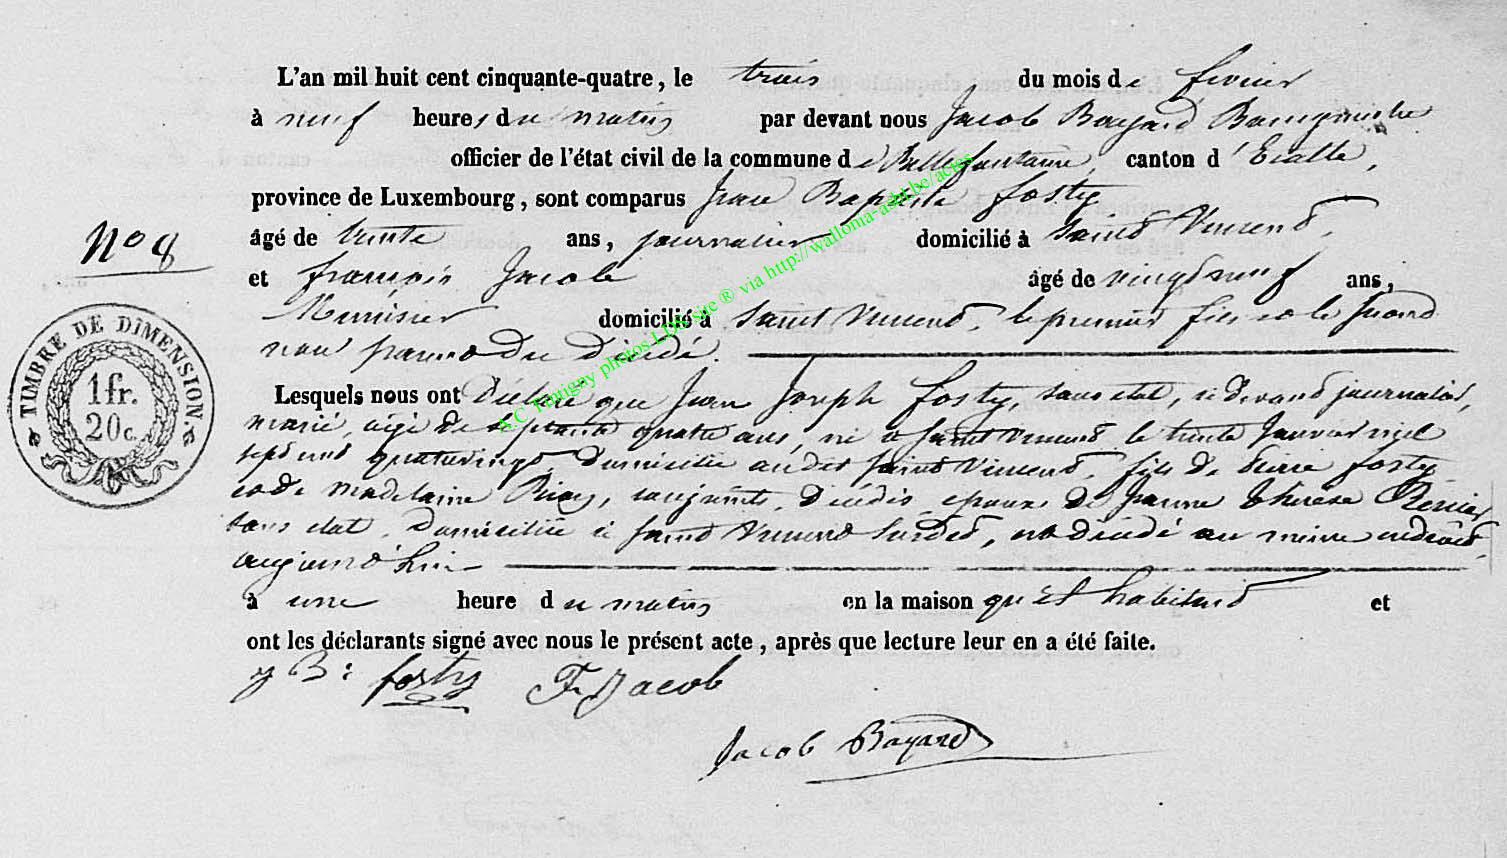 L'an mil huit cent cinquante-quatre, le trois du mois de fevrier
à neuf heures du matin par devant nous Jacob Bayard Bourgmestre
officier de l'état civil de la commune de Bellefontaine, canton d'Etalle,
province de Luxembourg, sont comparus Jean Baptiste fosty
N° 8
âgé de trente ans, journalier domicilié à Saint Vincent,
et françois Jacob âgé de vingt neuf ans,
Menuisier domicilié à Saint Vincent, le premier fils et le second
non parent du décédé.
TIMBRE DE DIMENSION.
1 fr.
20 c.
Lesquels nous ont Déclaré que Jean Joseph fosty, sans état, ci devant journalier,
marié, agé de septante quatre ans, né à Saint Vincent le trente Janvier mil
sept cent quatrevingt, domicilié audit Saint Vincent, fils de Pierre fosty
et de Madelaine, conjoints, décédés, epoux de Jeanne Therese
sans etat, domiciliée à Saint Vincent susdit, est décédé au même endroit
aujourd'hui
à une heure du matin en la maison qu'il habitait et
ont les déclarants signé avec nous le présent acte, après que lecture leur en a été faite.
J B: fosty F. Jacob
Jacob Bayard
E.C Tintigny photos LDS site ® via http://wallonia-asbl.be/actes